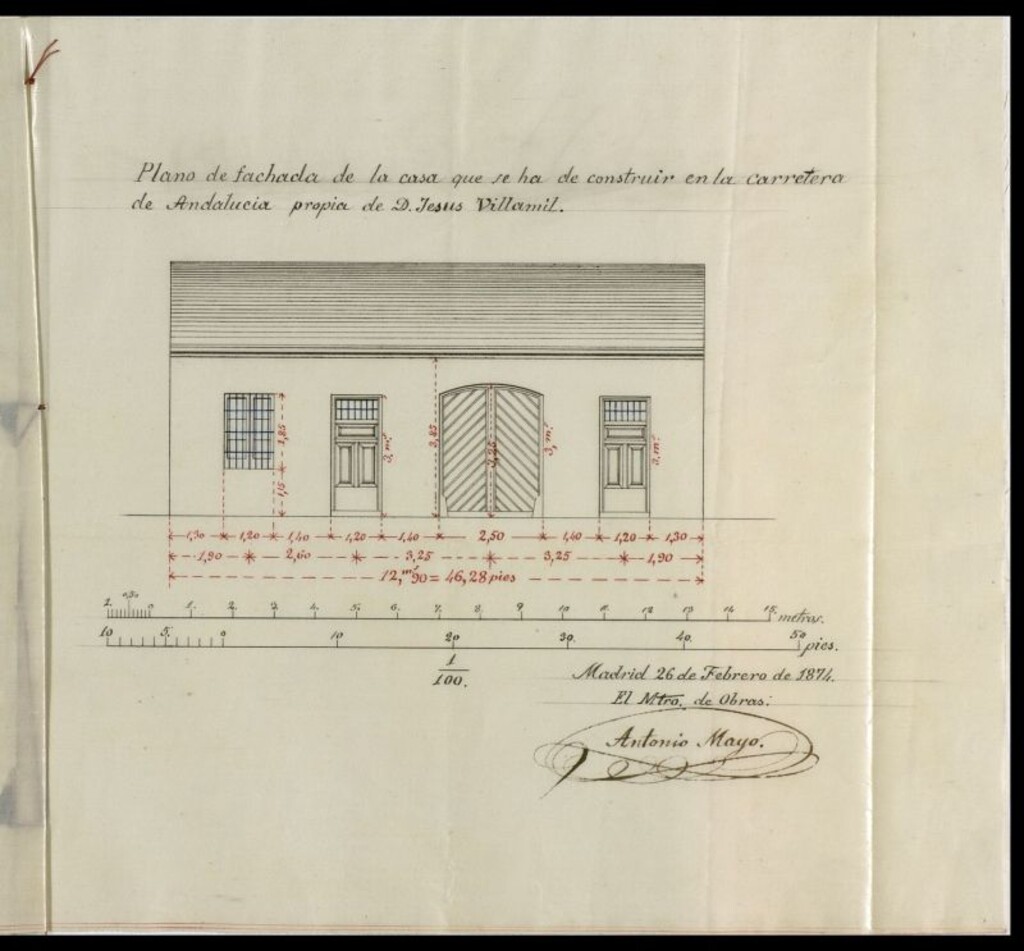 Plano de fachada de la casa que se ha de construir en la carretera
de Andalucia propia de D. Jesus Villamil.
1,85
3, m.s
3,85
3,25
3, m.s
3, m.s
1,15
1,30 1,20 1,40 1,20 1,40 2,50 1,40 1,20 1,30
1,90 2,60 3,25 3,25 1,90
12,m.s90 = 46,28 pies
1. 0,50 0 1. 2. 3. 4. 5. 6. 7. 8. 9. 10 11. 12 13 14 15 metros.
10 5. 0 10 20 30. 40. 50 pies.
1
100.
Madrid 26 de Febrero de 1874.
El Mtro. de Obras:
Antonio Mayo.